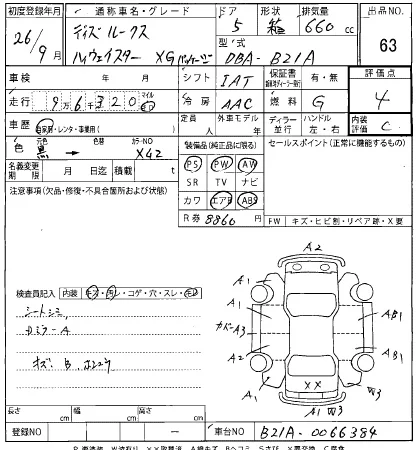 初度登録年月 通称車名・グレード ドア 形状 排気量 出品NO.
26/9月 デイズルークス 5 箱 660cc 63
ハイウェイスター XG パッケージ 型式 DBA-B21A
車検 年 月 シフト IAT 保証書 有・無 評価点
走行 9万6千320 マイル km 冷房 AAC 燃料 G 4
車歴 自家用・レンタ・事業用( ) 定員 人 外車モデル 年 ディーラー 並行 ハンドル 左・右 内装評価 C
色 元色 黒 → 色替 カラーNO X42 装備品(純正品に限る) セールスポイント(正常に機能するもの)
PS PW AW
名義変更期限 月 日迄 積載 t SR TV ナビ
注意事項(欠品・修復・不具合箇所および状態) カワ エアB ABS
R券 8860円 FW キズ・ヒビ割・リペア跡・X要
A2
検査員記入 内装 キズ・汚レ・コゲ・穴・スレ・
シートシミ
Dミラー A
キズ. B.
A1 A1
カバーA3 AB1
A2 AB1
A1 XX W3
A1 W3
長さ cm 幅 cm 高さ cm
登録NO — 車台NO B21A-0066384